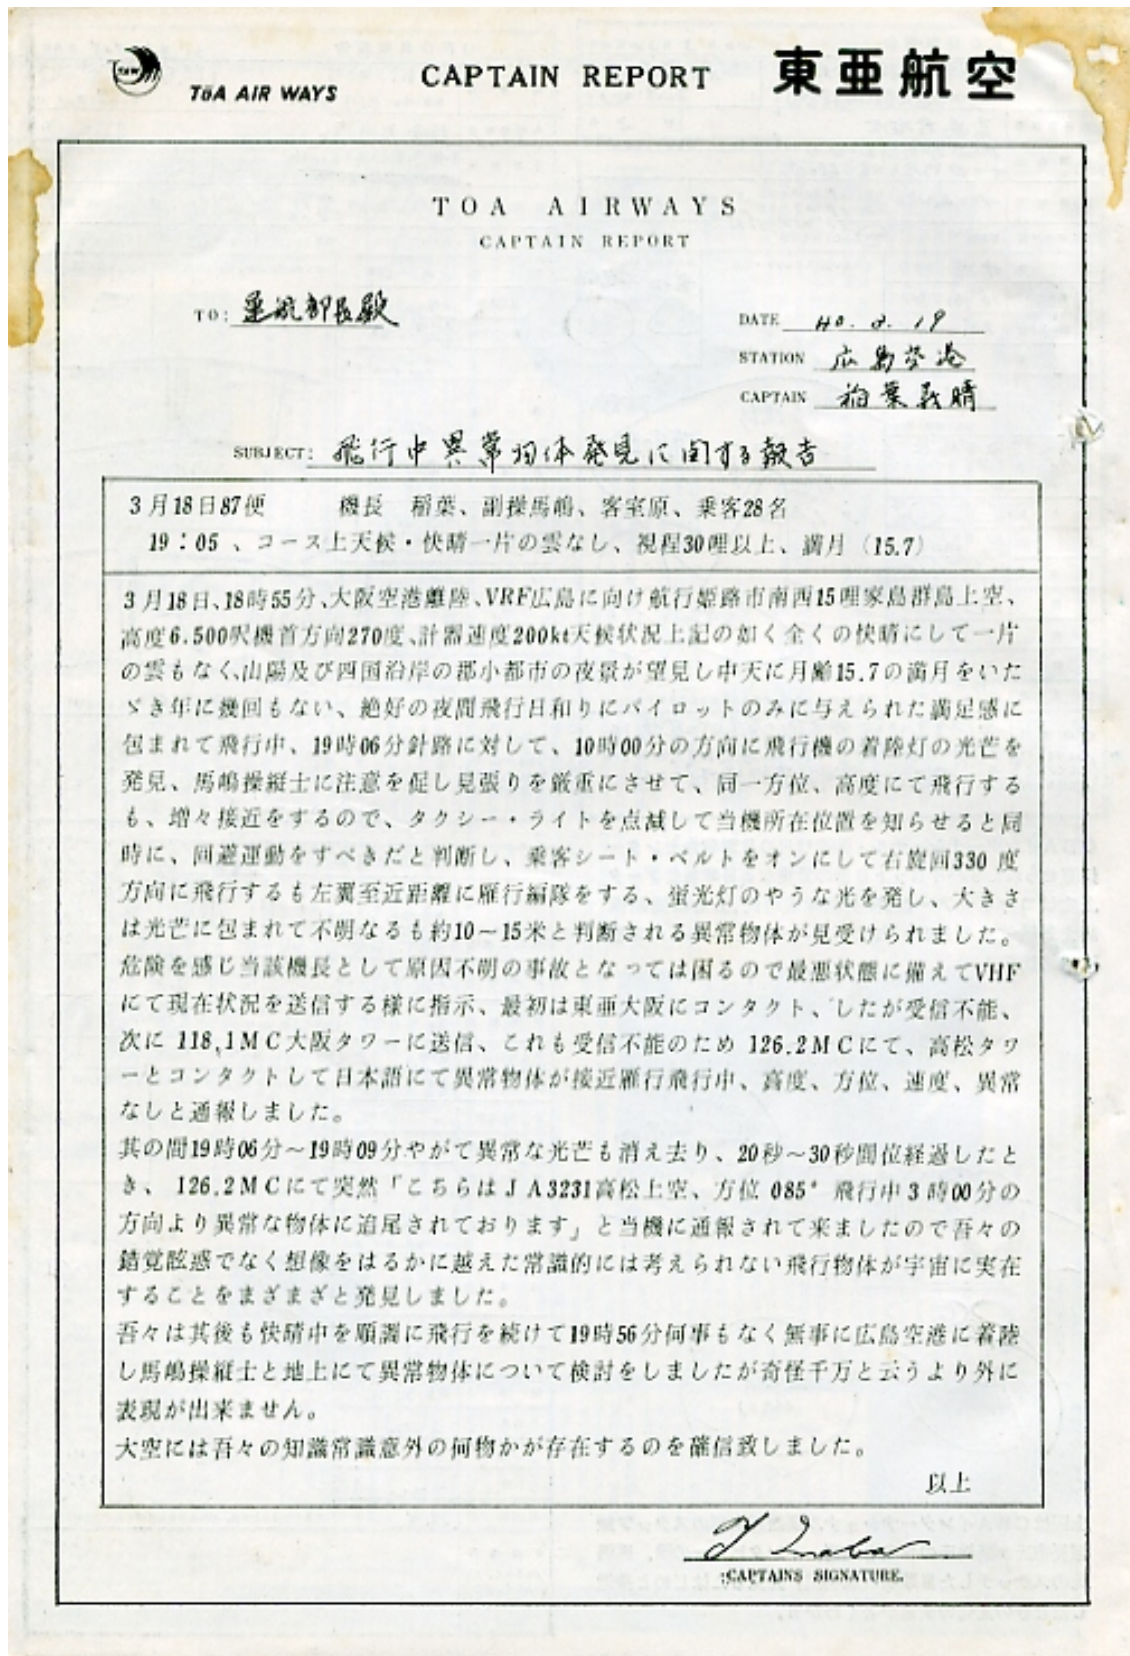 TOA AIR WAYS
CAPTAIN REPORT
東亜航空
TOA AIRWAYS
CAPTAIN REPORT
TO: 運航部長殿
DATE 40.3.19
STATION 広島空港
CAPTAIN 稲葉義晴
SUBJECT: 飛行中異常物体発見に関する報告
3月18日87便 機長 稲葉、副操馬嶋、客室原、乗客28名
19:05、コース上天候・快晴一片の雲なし、視程30哩以上、満月(15.7)
3月18日、18時55分、大阪空港離陸、VRF広島に向け航行姫路市南西15哩家島群島上空、
高度6.500呎機首方向270度、計器速度200kt天候状況上記の如く全くの快晴にして一片
の雲もなく、山陽及び四国沿岸の都小都市の夜景が望見し中天に月齢15.7の満月をいた
ゞき年に幾回もない、絶好の夜間飛行日和りにパイロットのみに与えられた満足感に
包まれて飛行中、19時06分針路に対して、10時00分の方向に飛行機の着陸灯の光芒を
発見、馬嶋操縦士に注意を促し見張りを厳重にさせて、同一方位、高度にて飛行する
も、増々接近をするので、タクシー・ライトを点滅して当機所在位置を知らせると同
時に、回避運動をすべきだと判断し、乗客シート・ベルトをオンにして右旋回330度
方向に飛行するも左翼至近距離に雁行編隊をする、蛍光灯のやうな光を発し、大きさ
は光芒に包まれて不明なるも約10〜15米と判断される異常物体が見受けられました。
危険を感じ当該機長として原因不明の事故となっては困るので最悪状態に備えてVHF
にて現在状況を送信する様に指示、最初は東亜大阪にコンタクト、したが受信不能、
次に 118,1MC大阪タワーに送信、これも受信不能のため 126.2MCにて、高松タワ
ーとコンタクトして日本語にて異常物体が接近雁行飛行中、高度、方位、速度、異常
なしと通報しました。
其の間19時06分〜19時09分やがて異常な光芒も消え去り、20秒〜30秒間位経過したと
き、126.2MCにて突然「こちらはJA3231高松上空、方位 085° 飛行中3時00分の
方向より異常な物体に追尾されております」と当機に通報されて来ましたので吾々の
錯覚眩惑でなく想像をはるかに越えた常識的には考えられない飛行物体が宇宙に実在
することをまざまざと発見しました。
吾々は其後も快晴中を順調に飛行を続けて19時56分何事もなく無事に広島空港に着陸
し馬嶋操縦士と地上にて異常物体について検討をしましたが奇怪千万と云うより外に
表現が出来ません。
大空には吾々の知識常識意外の何物かが存在するのを確信致しました。
以上
CAPTAINS SIGNATURE.